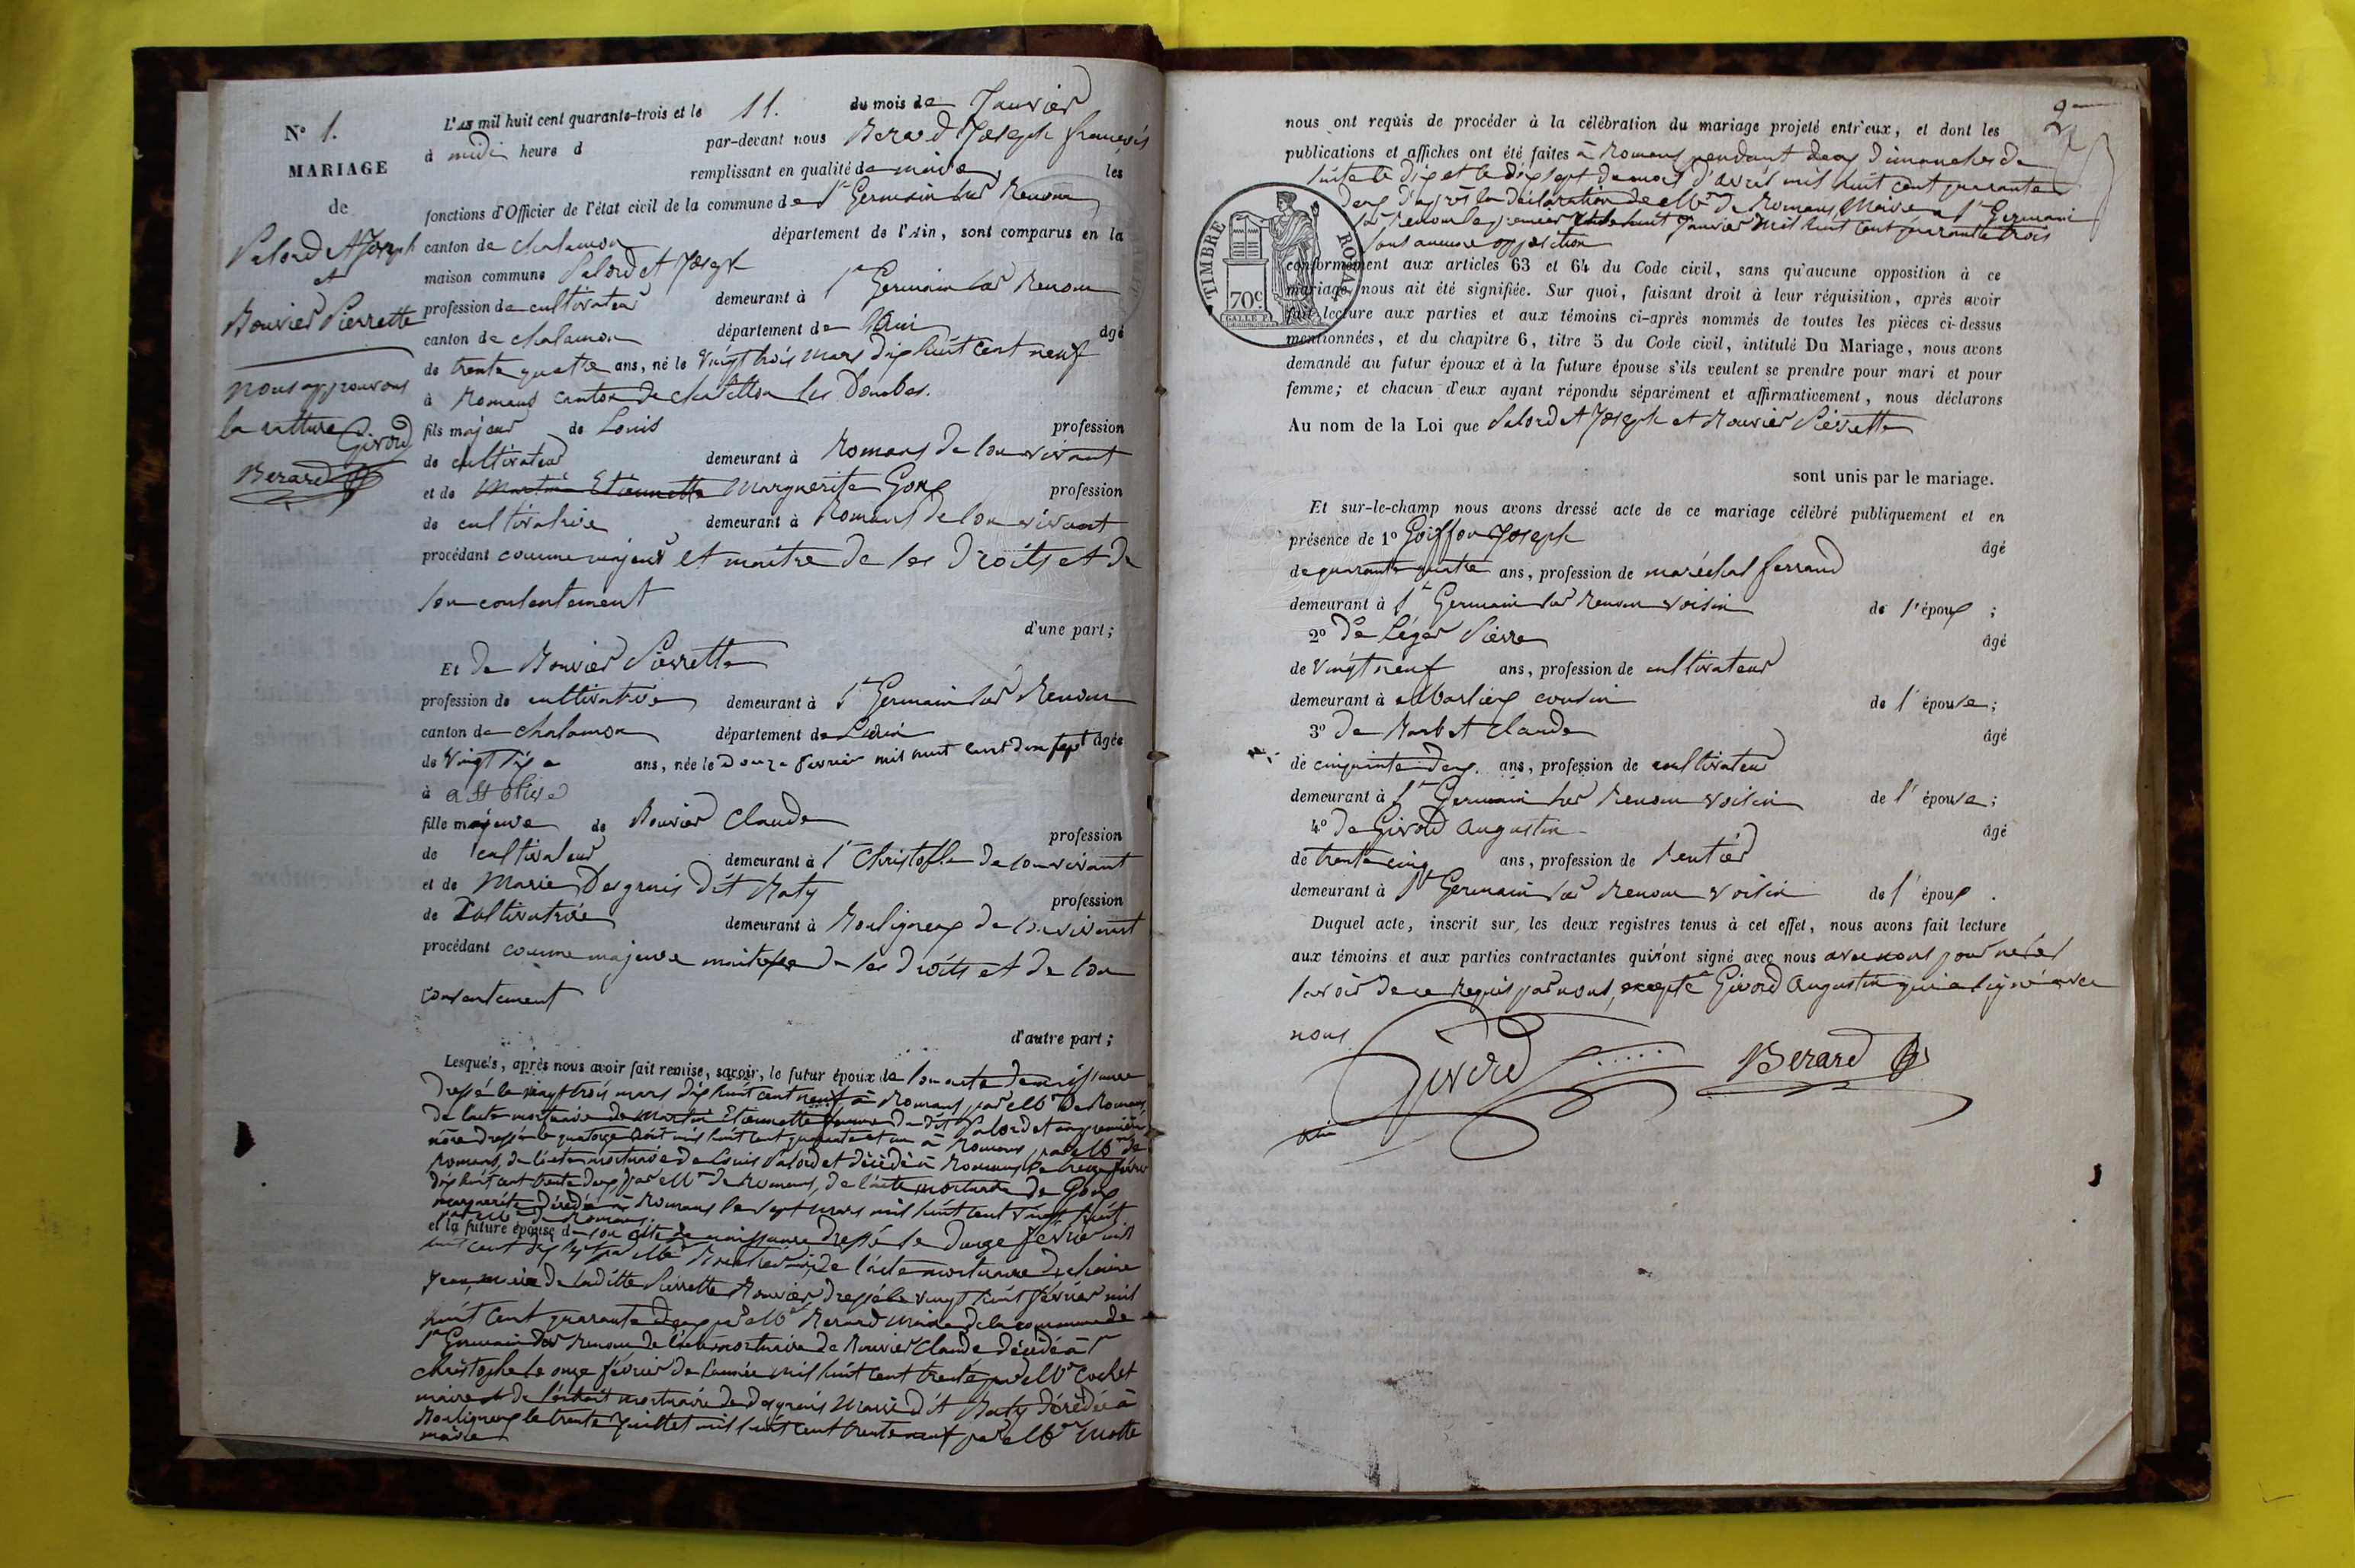 N° 1.
MARIAGE
de
Palordet Joseph
et
Bouvier Pierrette
nous approuvons
la rature
Girord
Berard
L'AN mil huit cent quarante-trois et le 11. du mois de Janvier
à midi heure d par-devant nous Berard Joseph françois
remplissant en qualité de maire, les
fonctions d'Officier de l'état civil de la commune de St Germain sur Renom
canton de chalamon département de l'Ain, sont comparus en la
maison commune Palordet Joseph
profession de cultivateur demeurant à St Germain sur Renom
canton de chalamon département de l'Ain âgé
de trente quatre ans, né le vingt trois mars dix huit cent neuf
à Romans canton de chatillon les Dombes.
fils majeur de Louis profession
de cultivateur demeurant à Romans de son vivant
et de Martin Etiennette Marguerite Goux profession
de cultivatrice demeurant à Romans de son vivant
procédant comme majeur et maître de ses droits et de
son contentement
d'une part;
Et de Bouvier Pierrette
profession de cultivatrice demeurant à St Germain sur Renom
canton de chalamon département de L'Ain
de vingt six ans, née le douze fevrier mil huit cent dix sept âgée
à St Olive
fille majeure de Bouvier Claude profession
de cultivateur demeurant à St Christofle de son vivant
et de Marie Desgrois dit Baty profession
de Cultivatrice demeurant à Bouligneux de son vivant
procédant comme majeure maitresse de ses droits et de son
consentement
d'autre part;
Lesquels, après nous avoir fait remise, savoir, le futur époux de son acte de naissance
dressé le vingt trois mars dix huit cent neuf à Romans par Mr de Romans
de l'acte mortuaire de Martin Etiennette femme du dit Palordet en première
nôce dressé le quatorze Août mil huit cent quarante et un à Romans par Mr de
Romans, de l'acte mortuaire de Louis Palordet décédé à Romans le treize février
dix huit cent trente deux par Mr de Romans, de l'acte mortuaire de Goux
marguerite décédée à Romans le sept mars mil huit cent vingt huit
par Mr de Romans.
et la future épouse de son acte de naissance dressé le douze février mil
huit cent dix sept par Mr de l'acte mortuaire de
Jean, de laditte Pierrette Bouvier dressé le vingt huit février mil
huit cent quarante deux par Mr Berard maire de la commune de
St Germain sur Renom de l'acte mortuaire de Bouvier Claude décédé à St
Christophe le onze février de l'année mil huit cent trente par Mr Cochet
maire et de l'extrait mortuaire de desgrois Marie dit Baty décédée à
Bouligneux le trente Juillet mil huit cent trente neuf par Mr Motte
maire
2me
nous ont requis de procéder à la célébration du mariage projeté entr'eux, et dont les
publications et affiches ont été faites à Romans pendant deux dimanches de
suite le dix et le dix sept du mois d'avril mil huit cent quarante
deux d'après la déclaration de Mr de Romans Maire et à St Germain
sur Renom le premier et le huit Janvier mil huit cent quarante trois
sans aucune opposition
conformément aux articles 63 et 64 du Code civil, sans qu'aucune opposition à ce
mariage nous ait été signifiée. Sur quoi, faisant droit à leur réquisition, après avoir
fait lecture aux parties et aux témoins ci-après nommés de toutes les pièces ci-dessus
mentionnées, et du chapitre 6, titre 5 du Code civil, intitulé Du Mariage, nous avons
demandé au futur époux et à la future épouse s'ils veulent se prendre pour mari et pour
femme; et chacun d'eux ayant répondu séparément et affirmativement, nous déclarons
Au nom de la Loi que Palordet Joseph et Bouvier Pierrette
TIMBRE ROYAL
70c
sont unis par le mariage.
Et sur-le-champ nous avons dressé acte de ce mariage célébré publiquement et en
présence de 1° Goiffon Joseph âgé
de quarante quatre ans, profession de maréchal ferrand
demeurant à St Germain sur Renom voisin de l'époux;
2° De Léger Pierre âgé
de vingt neuf ans, profession de cultivateur
demeurant à Marlieux cousin de l'épouse;
3° De Barbet Claude âgé
de cinquante deux ans, profession de cultivateur
demeurant à St Germain sur Renom voisin de l'épouse;
4° De Girord Augustin âgé
de trente cinq ans, profession de Rentier
demeurant à St Germain sur Renom voisin de l'époux.
Duquel acte, inscrit sur les deux registres tenus à cet effet, nous avons fait lecture
aux témoins et aux parties contractantes qui n'ont signé avec nous avec nous pour ne le
savoir de ce requis par nous, excepté Girord Augustin qui a signé avec
nous
Girord Berard